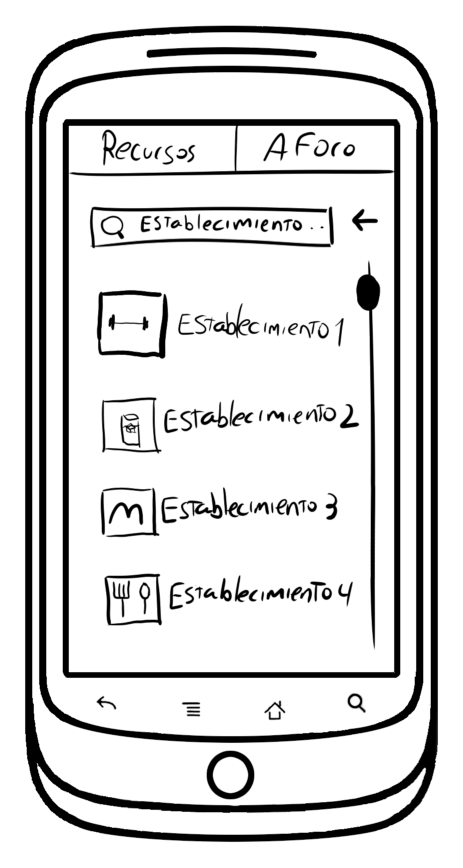 Recursos
Aforo
Establecimiento ..
Establecimiento 1
Establecimiento 2
Establecimiento 3
Establecimiento 4